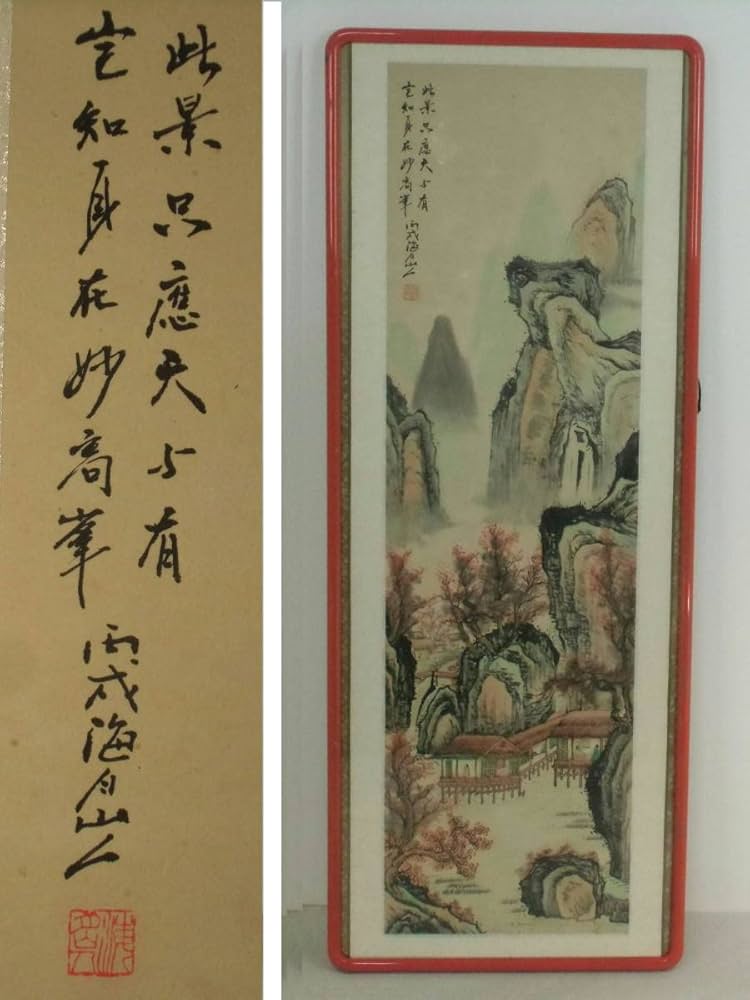 此景只應天上有
豈知身在妙高峯 丙戌海島人
此景只應天上有
豈知身在妙高峯 丙戌海島人